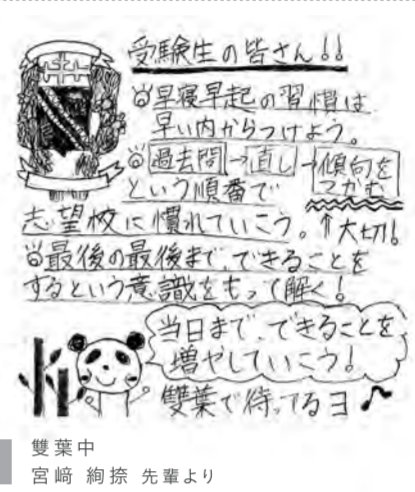 受験生の皆さん!!
早寝早起の習慣は
早い内からつけよう。
過去問→直し→傾向を
つかむ
という順番で
志望校に慣れていこう。↑大切!
最後の最後まで、できることを
するという意識をもって解く!
当日まで、できることを
増やしていこう!
雙葉で待ってるヨ♪
雙葉中
宮﨑 絢捺 先輩より